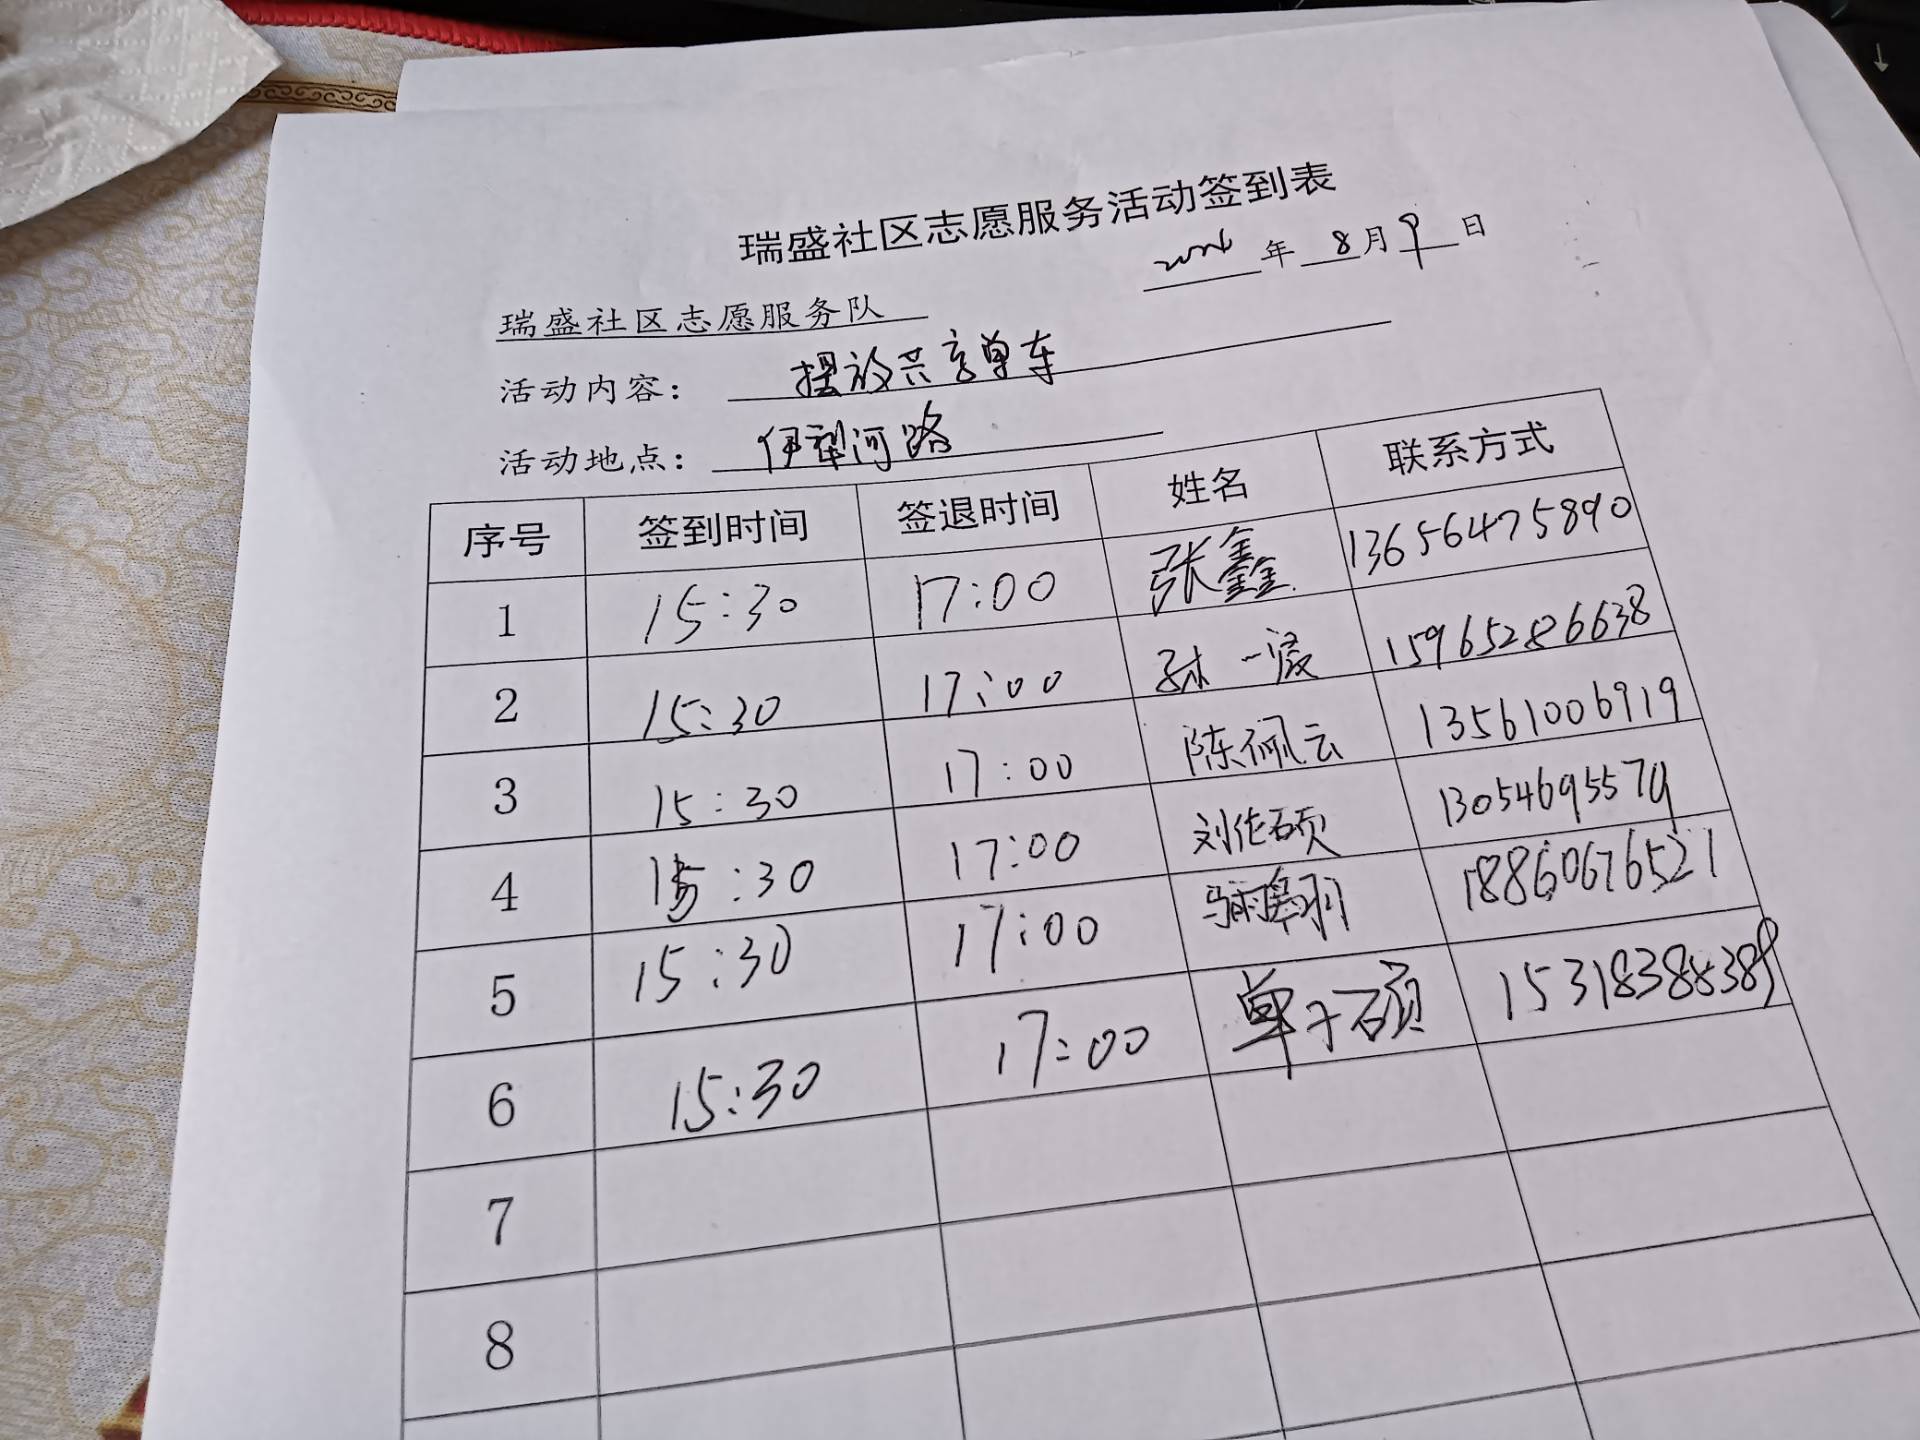 瑞盛社区志愿服务活动签到表
年 8 月 9 日
瑞盛社区志愿服务队
活动内容： 摆放共享单车
活动地点： 伊犁河路
序号 签到时间 签退时间 姓名 联系方式
1 15:30 17:00 张鑫 13656475890
2 15:30 17:00 孙一 15965286638
3 15:30 17:00 陈佩云 13561006919
4 15:30 17:00 刘佐硕 13054695579
5 15:30 17:00 18860676521
6 15:30 17:00 单子硕 15318388389
7
8